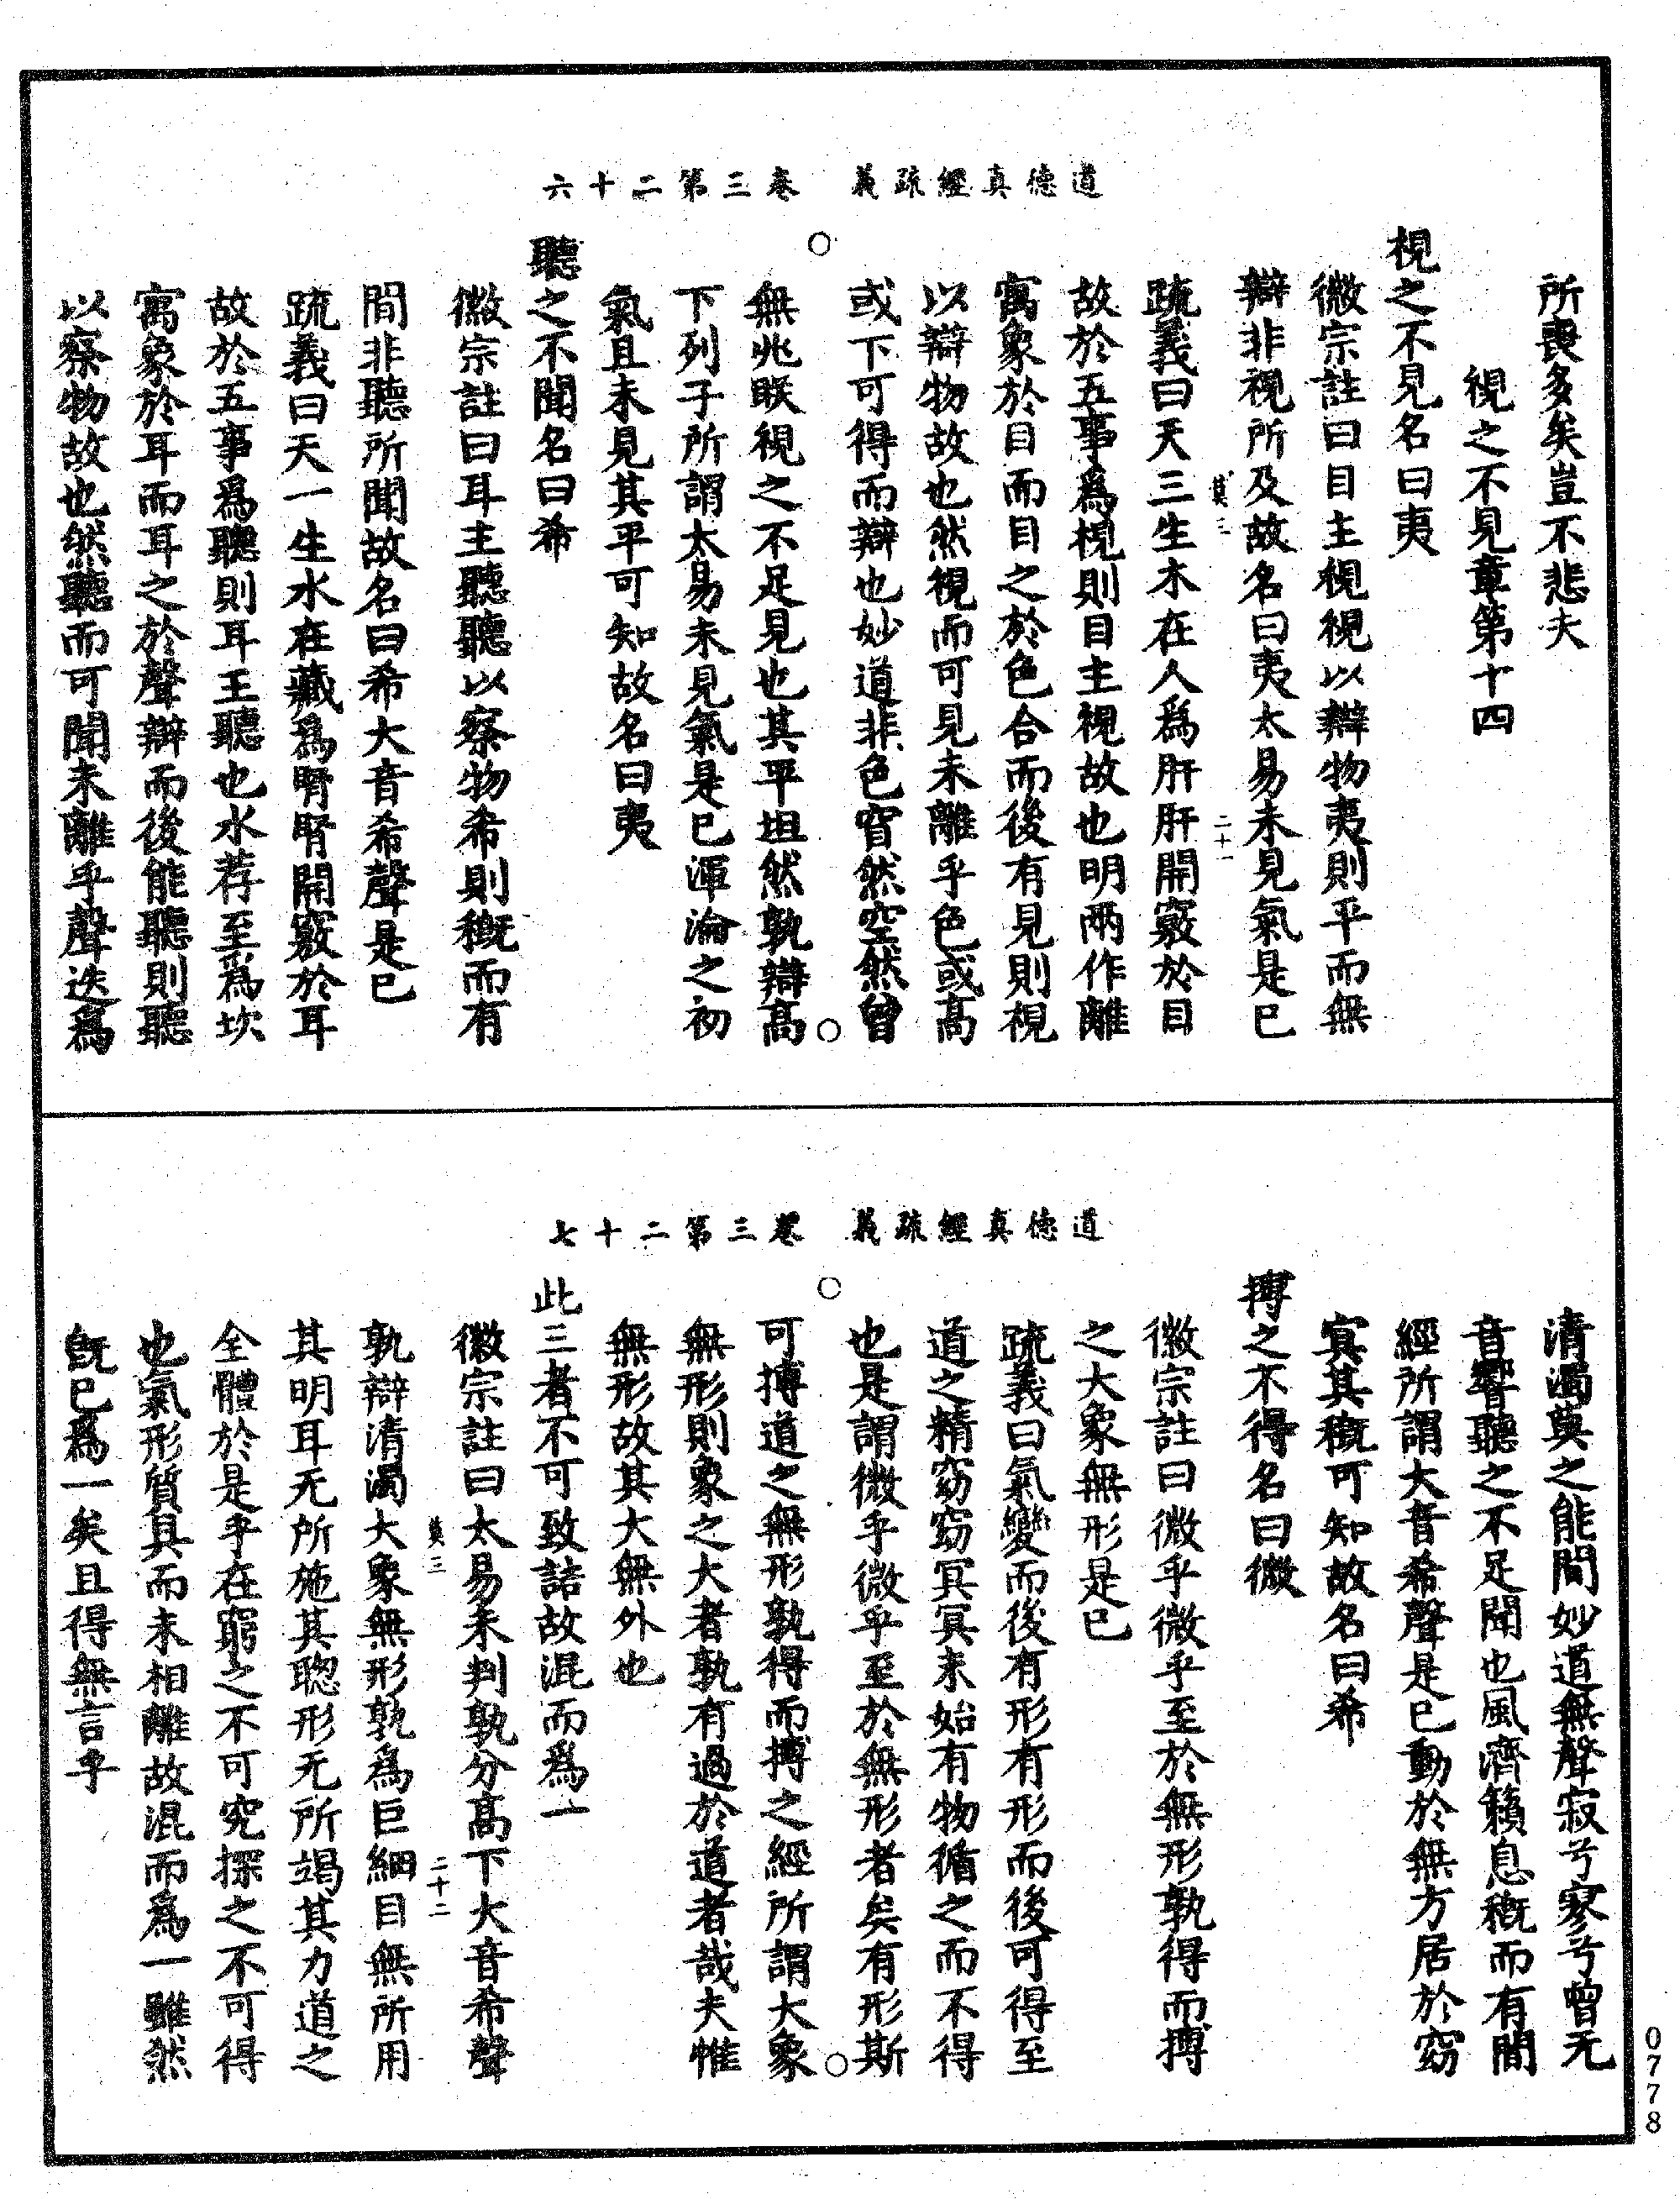 道德真經疏義　卷三第二十六
所喪多矣豈不悲夫
視之不見章第十四
視之不見名曰夷
徽宗註曰目主視視以辯物夷則平而無
辯非視所及故名曰夷太易未見氣是已
莫三　二十一
疏義曰天三生木在人爲肝肝開竅於目
故於五事爲視則目主視故也明兩作離
寓象於目而目之於色合而後有見則視
以辯物故也然視而可見未離乎色或高
或下可得而辯也妙道非色窅然空然曾
無兆眹視之不足見也其平坦然孰辯高
下列子所謂太易未見氣是已渾淪之初
氣且未見其平可知故名曰夷
聽之不聞名曰希
徽宗註曰耳主聽聽以察物希則概而有
間非聽所聞故名曰希大音希聲是已
疏義曰天一生水在藏爲腎腎開竅於耳
故於五事爲聽則耳王聽也水荐至爲坎
寓象於耳而耳之於聲辯而後能聽則聽
以察物故也然聽而可聞未離乎聲迭爲
道德真經疏義　卷三第二十七
清濁莫之能間妙道無聲寂兮寥兮曾无
音響聽之不足聞也風濟籟息概而有間
經所謂大音希聲是已動於無方居於窈
冥其概可知故名曰希
搏之不得名曰微
徽宗註曰微乎微乎至於無形孰得而搏
之大象無形是已
疏義曰氣變而後有形有形而後可得至
道之精窈窈冥冥未始有物循之而不得
也是謂微乎微乎至於無形者矣有形斯
可搏道之無形孰得而搏之經所謂大象
無形則象之大者孰有過於道者哉夫惟
無形故其大無外也
此三者不可致詰故混而爲一
徽宗註曰太易未判孰分高下大音希聲
莫三　二十二
孰辯清濁大象無形孰爲巨細目無所用
其明耳无所施其聰形无所竭其力道之
全體於是乎在窮之不可究探之不可得
也氣形質具而未相離故混而爲一雖然
旣已爲一矣且得無言乎
0778